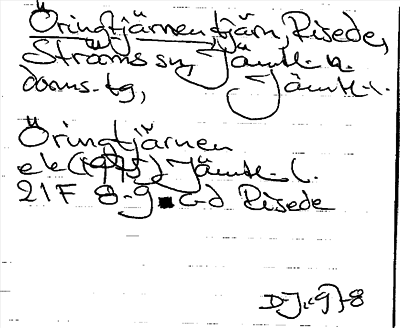 Öringtjärnen, tjärn, Risede,
Ströms sn, Jämtl. n.
doms.-tg, Jämtl. l.
Öringtjärnen
ek (1975) Jämtl. l.
21F 8-9 c-d Risede